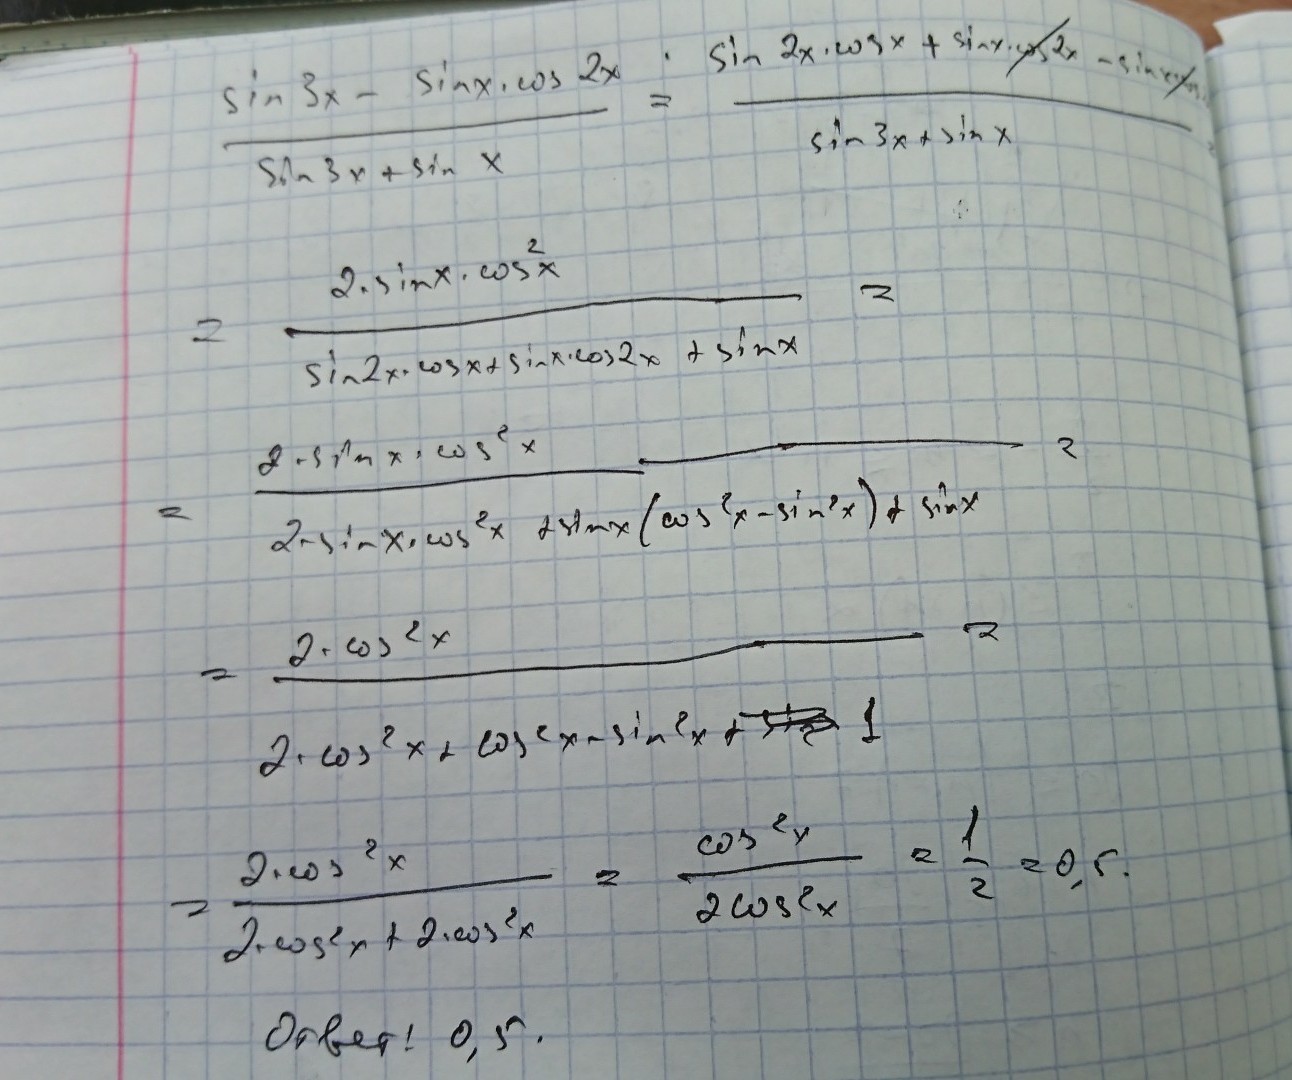 sin 3x - sinx · cos 2x / sin 3x + sin x = sin 2x · cosx + sinx · cos 2x - sinx · cos / sin 3x + sin x
= 2 · sinx · cos²x / sin2x · cosx + sinx · cos2x + sinx =
= 2 · sinx · cos²x / 2 · sinx · cos²x + sinx (cos²x - sin²x) + sinx =
= 2 · cos²x / 2 · cos²x + cos²x - sin²x + 1 =
= 2 · cos²x / 2 · cos²x + 2 · cos²x = cos²x / 2cos²x = 1/2 = 0,5.
Ответ: 0,5.